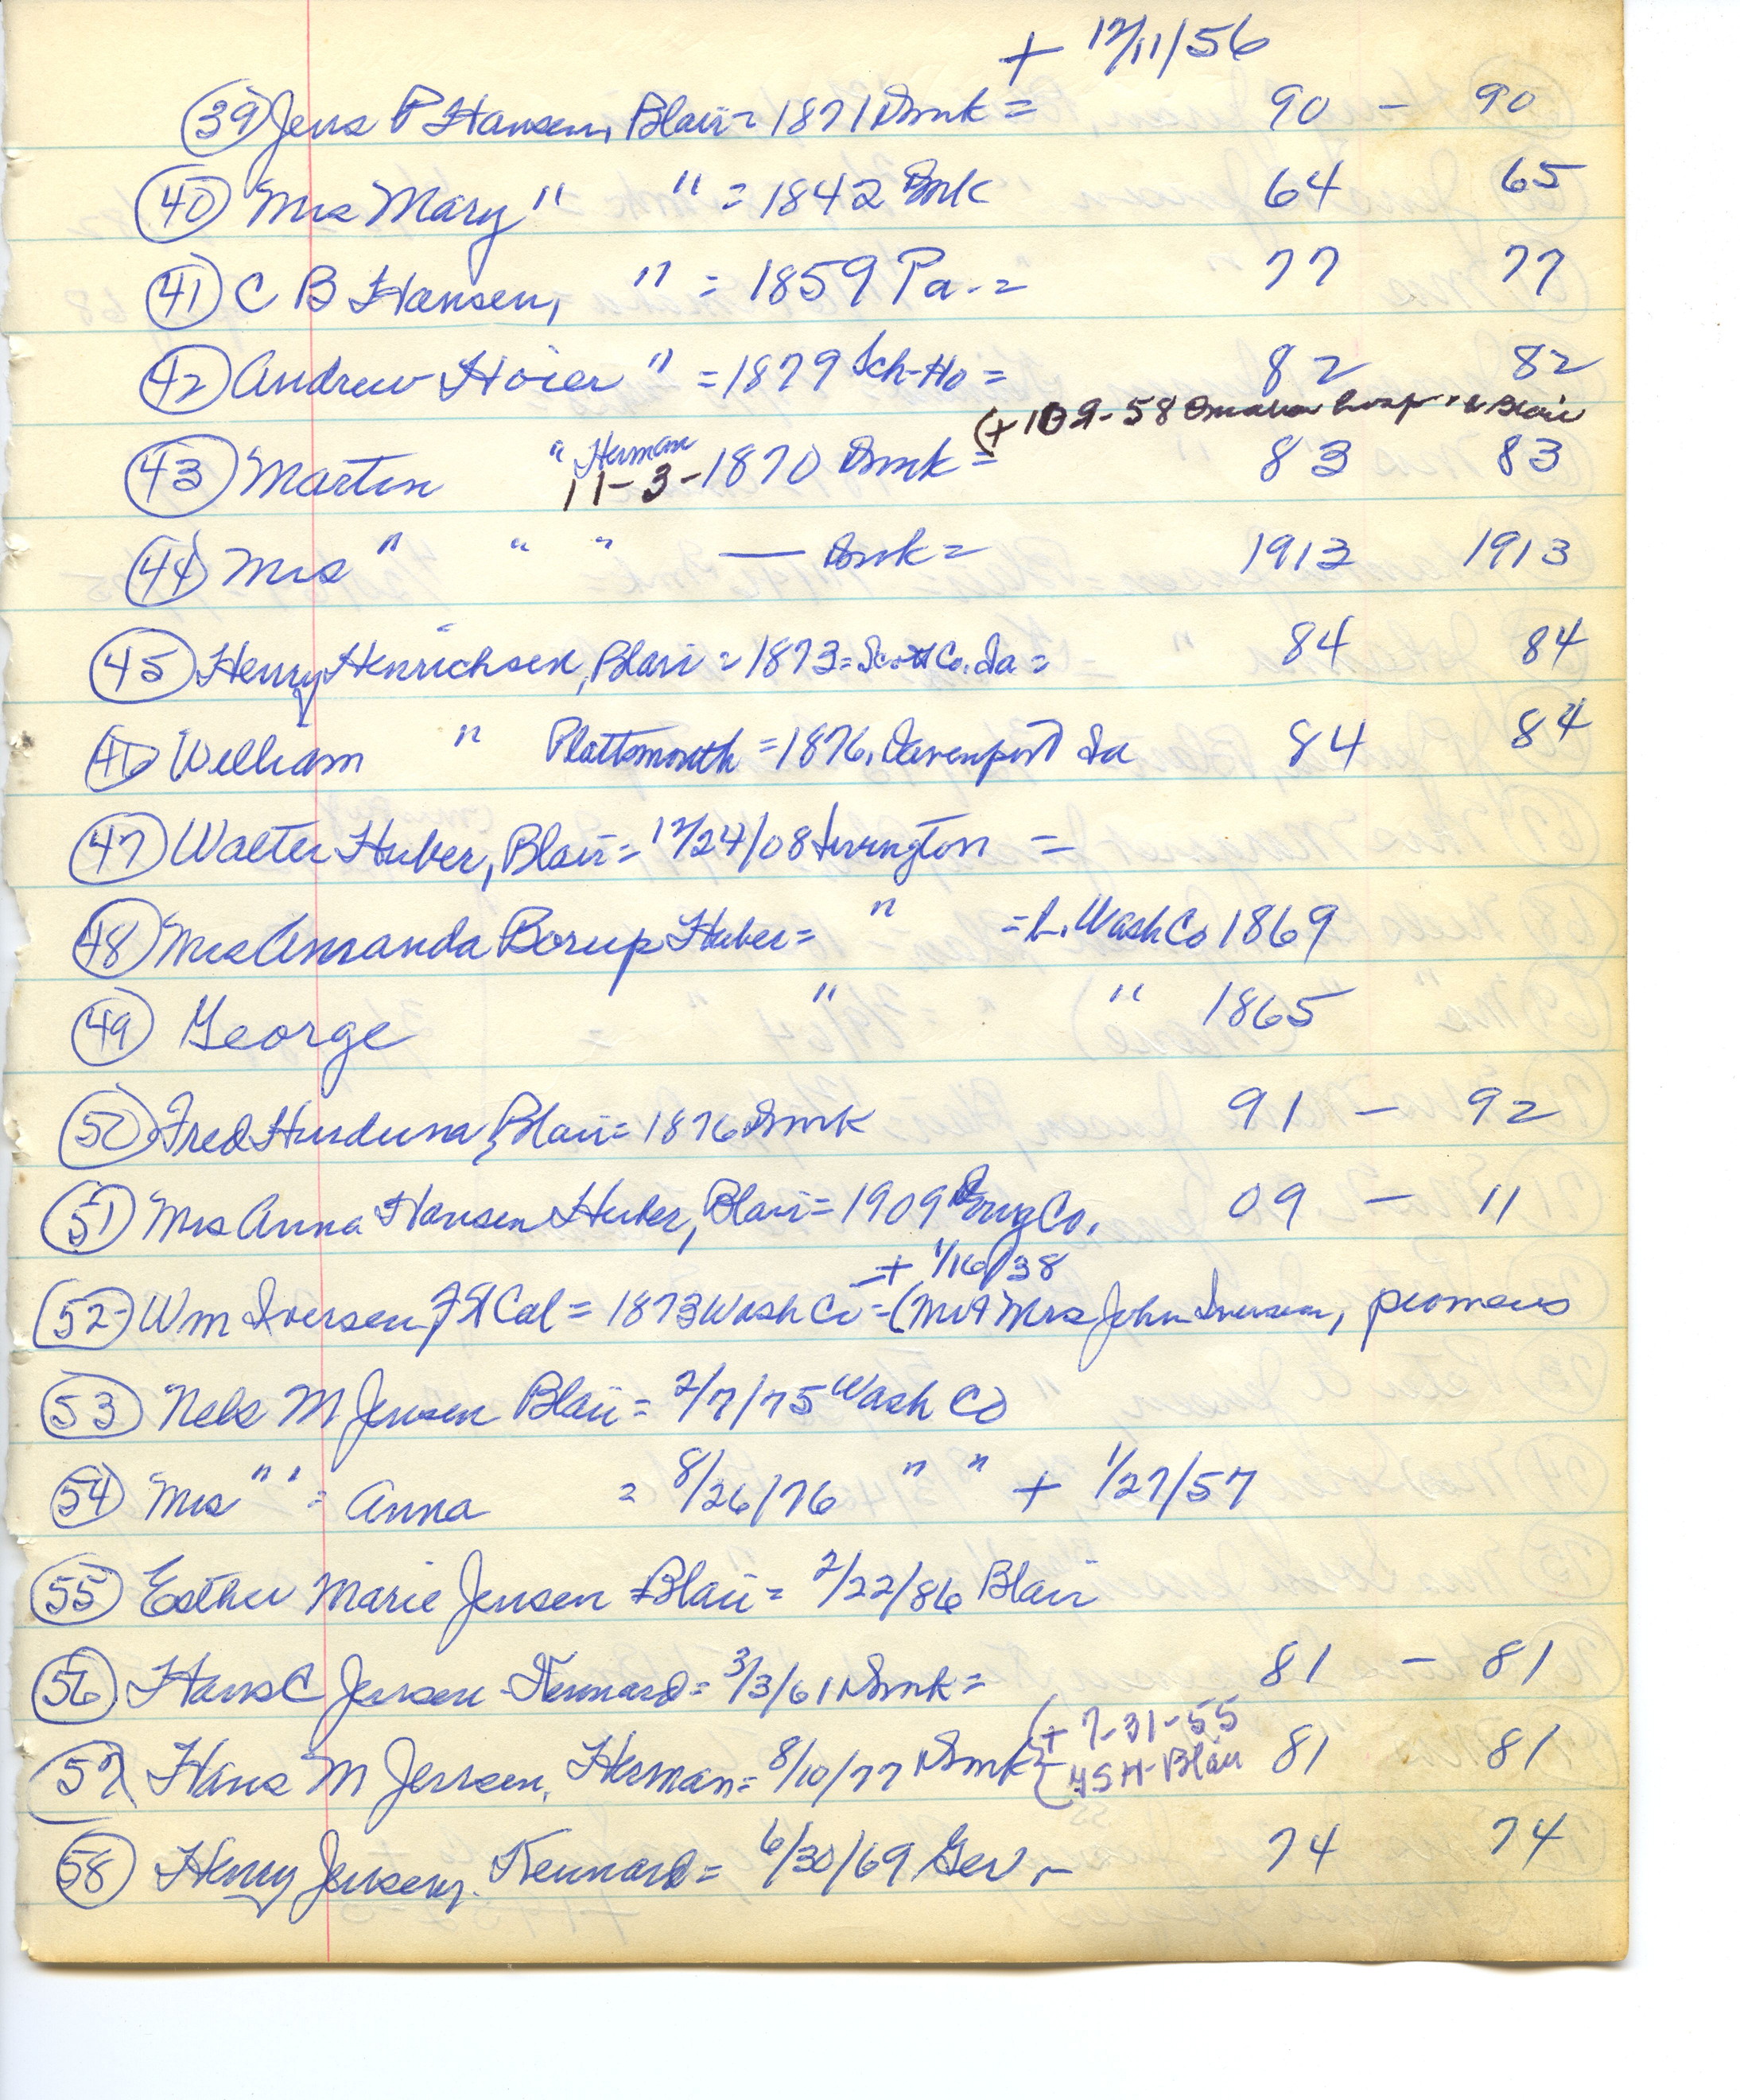 + 12/11/56
(39) Jens P Hansen, Blair = 1871 Dmk = 90 - 90
(40) Mrs Mary " " = 1842 Dmk 64 65
(41) C B Hansen, " = 1859 Pa. = 77 77
(42) Andrew Hoier " = 1879 Sch-Ho = 82 82
(+ 10 9-58 Omaha hosp Blair
(43) Martin " Herman 11-3-1870 Dmk = 83 83
(44) Mrs " " " — Dmk = 1913 1913
(45) Henry Henrichsen, Blair = 1873 = Scott Co. Ia = 84 84
(46) William " Plattsmouth = 1876, Davenport Ia 84 84
(47) Walter Huber, Blair = 12/24/08 Irvington =
(48) Mrs Amanda Borup Huber = " = L. Wash Co 1869
(49) George " " 1865
(50) Fred Hurduna, Blair = 1876 Dmk 91 - 92
(51) Mrs Anna Hansen Huber, Blair = 1909 Doug Co. 09 - 11
+ 1/16/38
(52) Wm Iversen, Ft Cal = 1873 Wash Co = (Mr & Mrs John Iversen, pioneers
(53) Nels M Jensen Blair = 2/7/75 Wash Co
(54) Mrs " " = Anna = 8/26/76 " " + 1/27/57
(55) Esther Marie Jensen = Blair = 2/22/86 Blair
(56) Hans C Jensen - Kennard = 3/3/61 Dmk = 81 - 81
(+ 7-31-55
(57) Hans M Jensen, Herman = 8/10/77 Dmk 81 81
-Blair
(58) Henry Jensen, Kennard = 6/30/69 Ger - 74 74